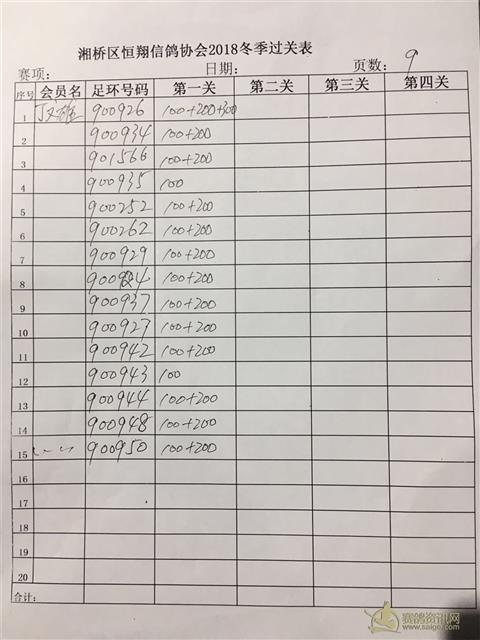 湘桥区恒翔信鸽协会2018冬季过关表
赛项: 日期: 页数: 9
序号 会员名 足环号码 第一关 第二关 第三关 第四关
1 丁又雄 900926 100+200+300
2 900934 100+200
3 901566 100+200
4 900935 100
5 900252 100+200
6 900262 100+200
7 900929 100+200
8 900924 100+200
9 900937 100+200
10 900927 100+200
11 900942 100+200
12 900943 100
13 900944 100+200
14 900948 100+200
15 900950 100+200
16
17
18
19
20
合计:
赛鸽资讯网
www.saige.com